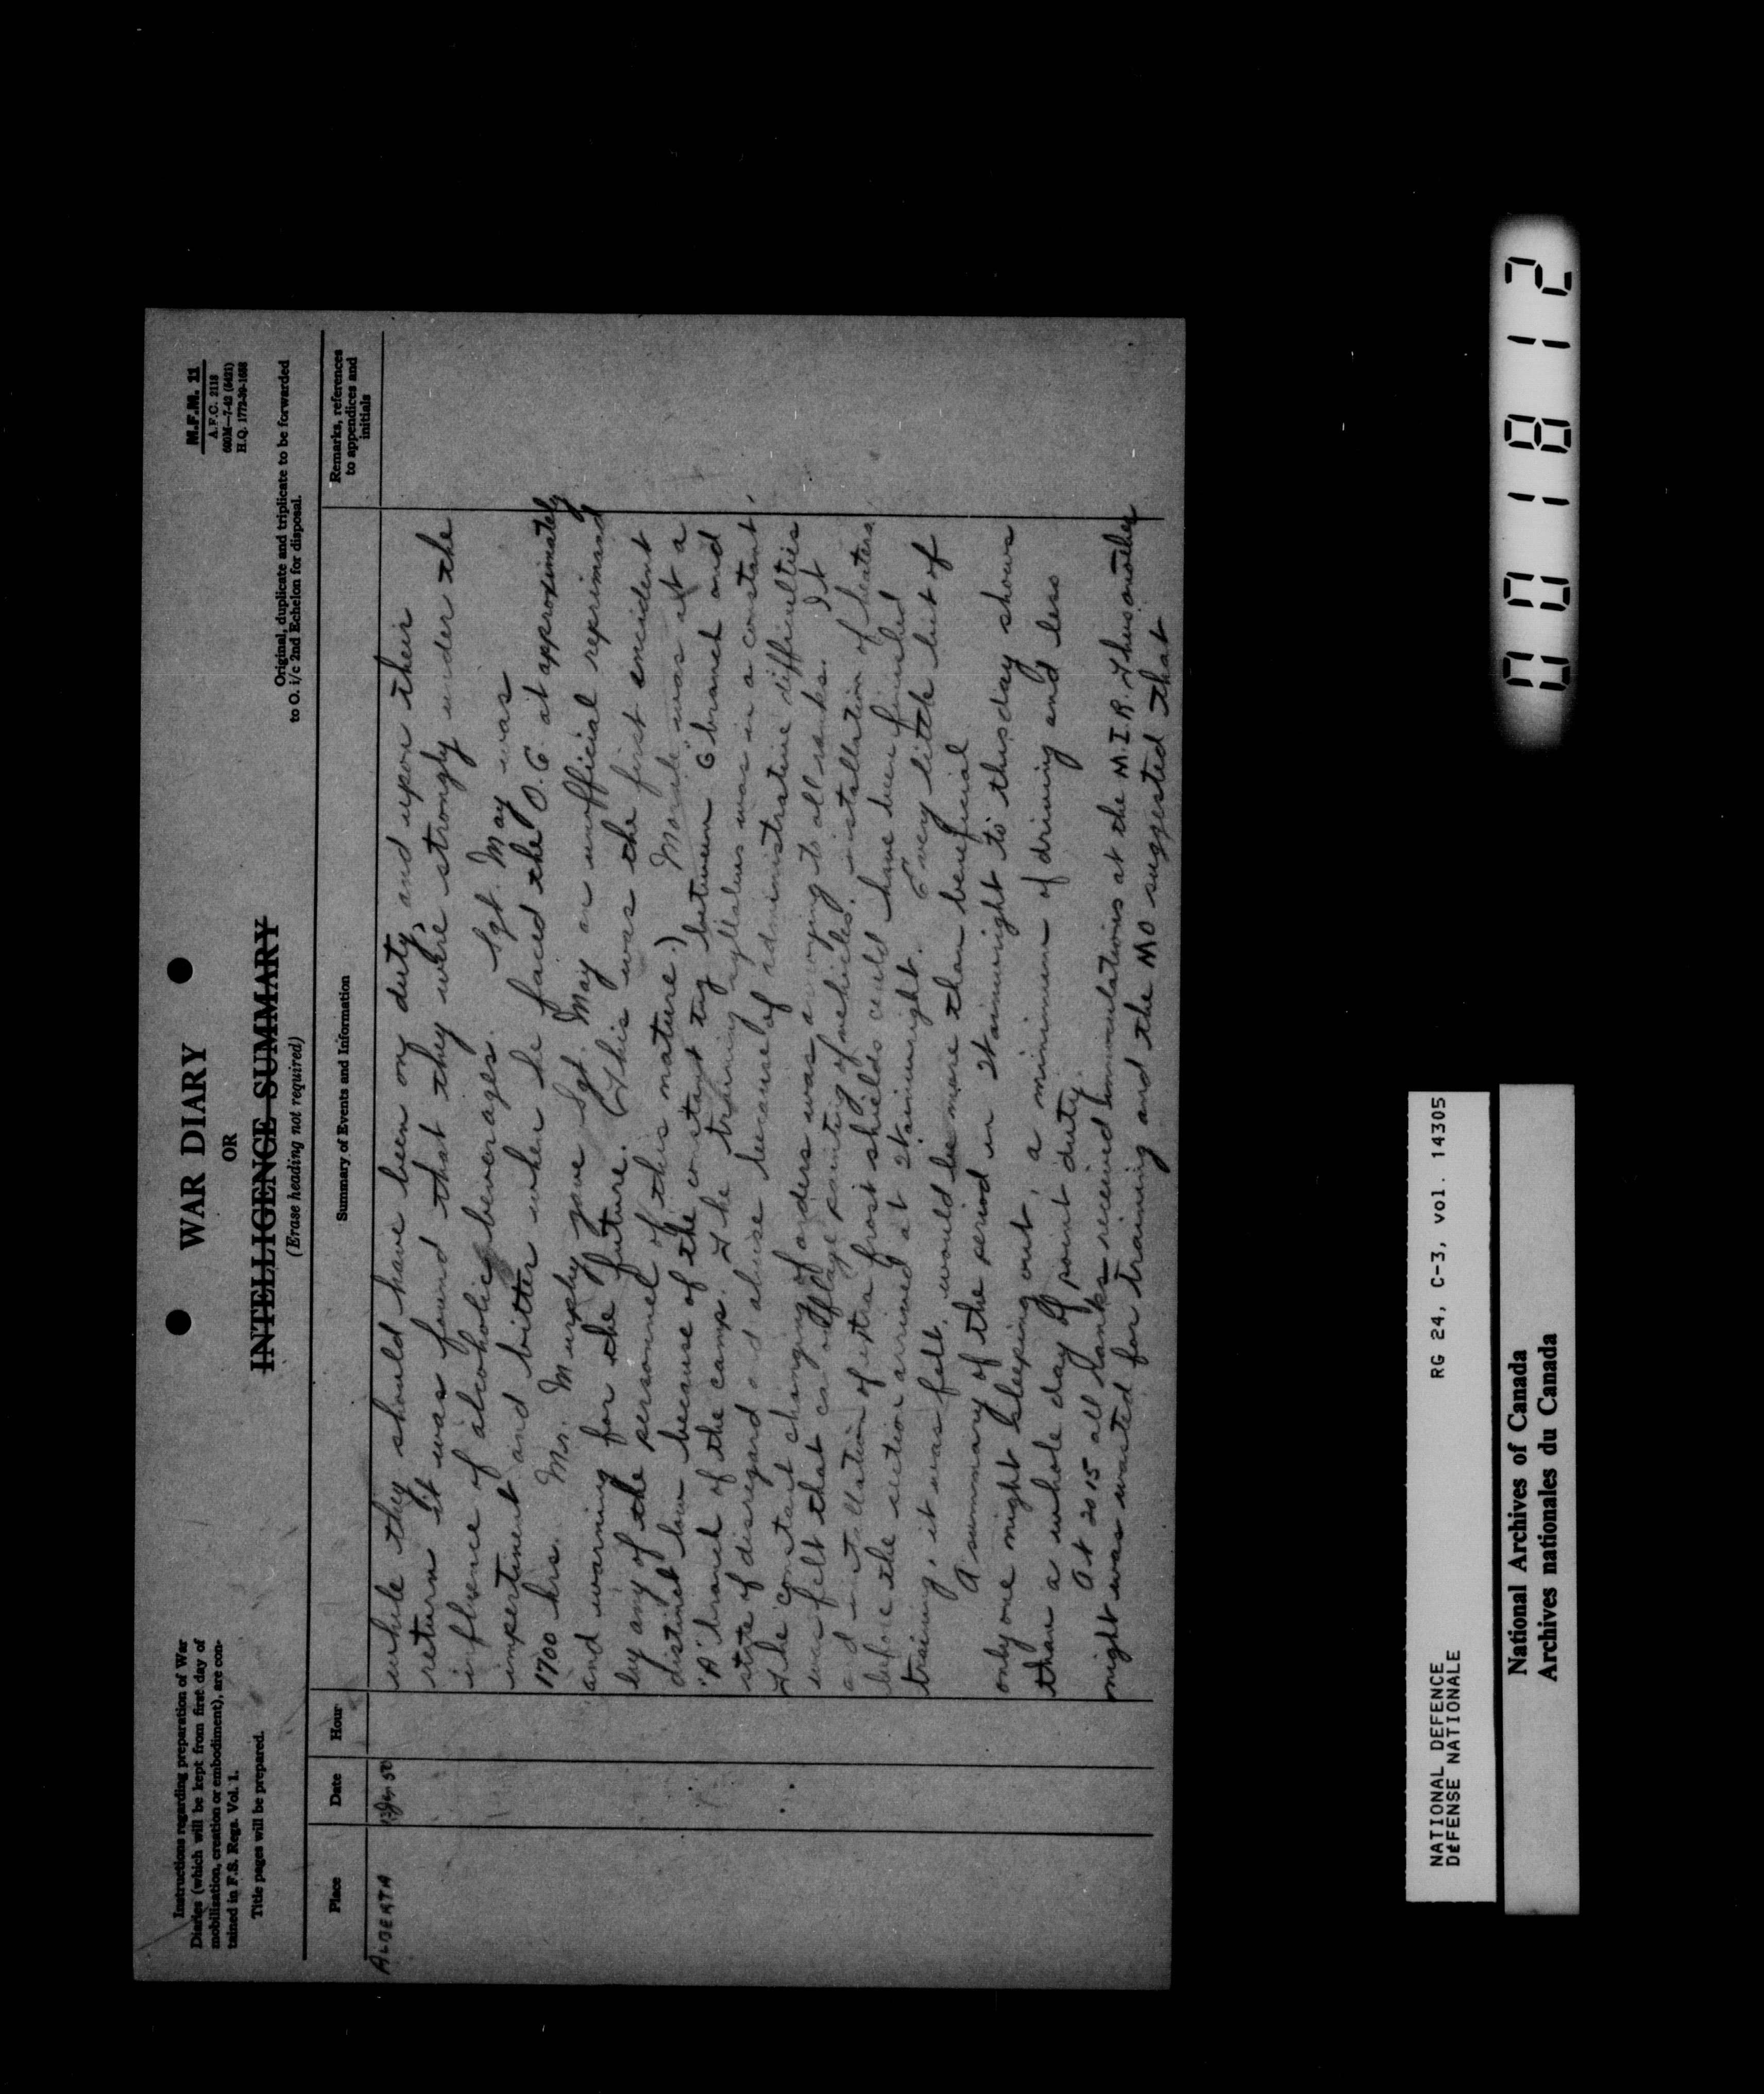 Instructions regarding preparation of War
Diaries (which will be kept from first day of
mobilization, creation or embodiment), are con-
tained in F.S. Regs. Vol. 1.
Title pages will be prepared.
WAR DIARY
OR
INTELLIGENCE SUMMARY
(Erase heading not required)
M.F.M. 11
A.F.C. 2118
600M—7-42 (5421)
H.Q. 1772-39-1658
Original, duplicate and triplicate to be forwarded
to O. i/c 2nd Echelon for disposal.
Place
Date
Hour
Summary of Events and Information
Remarks, references
to appendices and
initials
ALBERTA
13 Jan 50
while they should have been on duty, and upon their
return it was found that they were strongly under the
influence of alcoholic beverages. Sgt. May was
impertinent and bitter when he faced the O.C at approximately
1700 hrs. Mr. Murphy gave Sgt. May an unofficial reprimand
and warning for the future. (This was the first incident
by any of the personnel of this nature.) Morale was at a
distinct low because of the constant tug between "G" branch and
"A" branch of the camp. The training syllabus was in a constant
state of disregard and abuse because of administrative difficulties
The constant changing of orders was annoying to all ranks. It
was felt that camouflage painting of vehicles, installation of heaters
and installation of extra frost shields could have been finished
before the section arrived at Wainwright. Every little bit of
training, it was felt, would be more than beneficial
A summary of the period in Wainwright to this day shows
only one night sleeping out, a minimum of driving and less
than a whole day of point duty.
At 2015 all ranks received innoculations at the M.I.R. Thus another
night was wasted for training and the MO suggested that
001812
NATIONAL DEFENCE
DÉFENSE NATIONALE
RG 24, C-3, vol. 14305
National Archives of Canada
Archives nationales du Canada